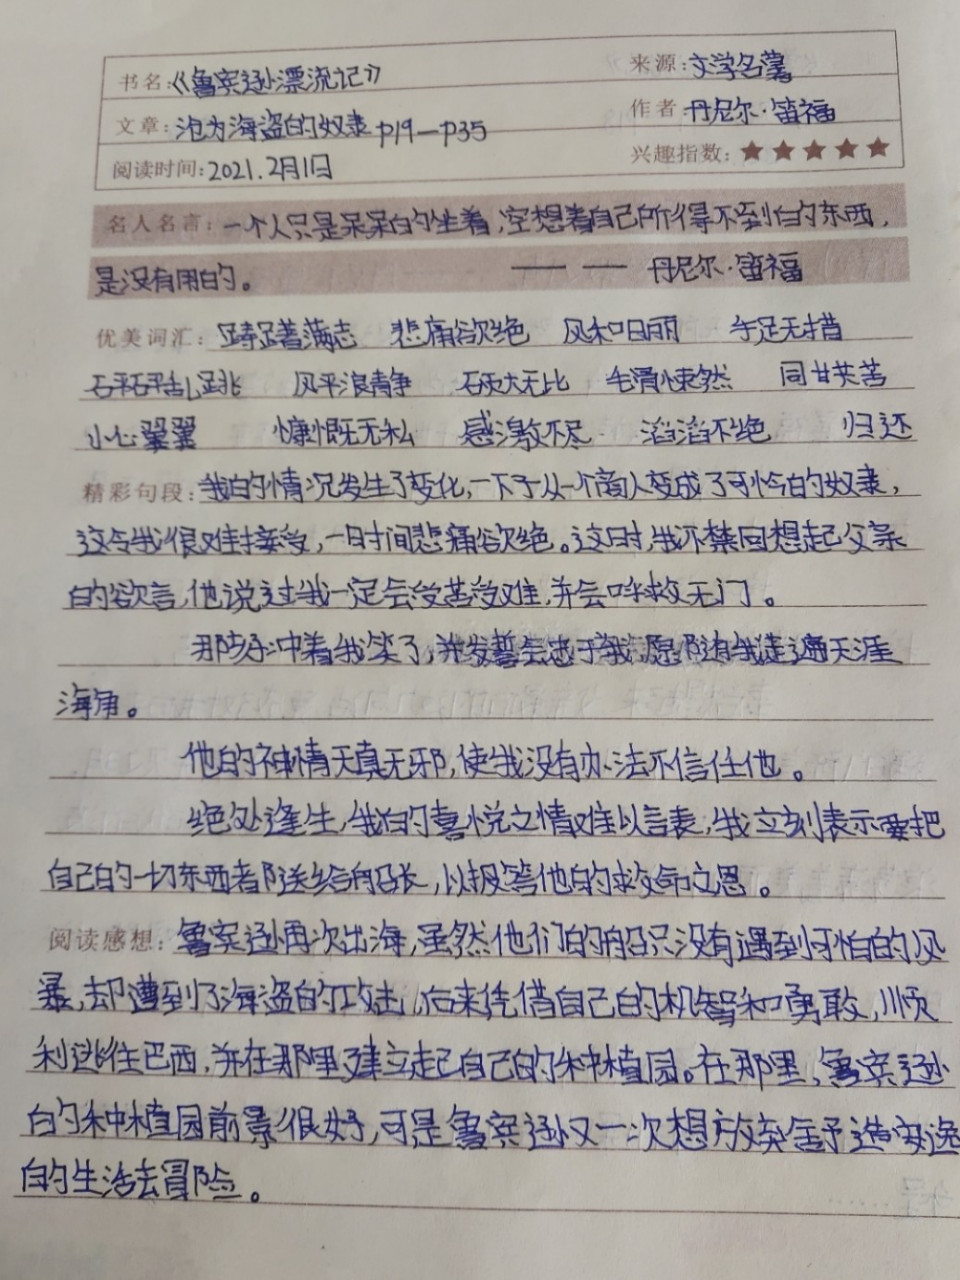 书名:《鲁宾逊漂流记》 来源:文学名著
文章:沦为海盗的奴隶 p19—p35 作者:丹尼尔·笛福
阅读时间:2021.2月1日 兴趣指数:★★★★★
名人名言:一个人只是呆呆的坐着,空想着自己所得不到怕的东西,
是没有用的。 —— —— 丹尼尔·笛福
优美词汇:踌躇满志 悲痛欲绝 风和日丽 手足无措
砰砰乱跳 风平浪静 硕大无比 毛骨悚然 同甘共苦
小心翼翼 慷慨无私 感激不尽 滔滔不绝 归还
精彩句段:我的情况发生了变化,一下子从一个商人变成了可怜的奴隶,
这令我很难接受,一时间悲痛欲绝。这时,我不禁回想起父亲
的欲言,他说过我一定会受苦受难,并会呼救无门。
那孩子冲着我笑了,并发誓会忠于我,愿跟随我走遍天涯
海角。
他的神情天真无邪,使我没有办法不信任他。
绝处逢生,我的喜悦之情难以言表,我立刻表示要把
自己的一切东西都送给船长,以报答他的救命之恩。
阅读感想:鲁宾逊再次出海,虽然他们的船只没有遇到可怕的风
暴,却遭到了海盗的攻击,后来凭借自己的机智和勇敢,顺
利逃往巴西,并在那里建立起自己的种植园。在那里,鲁宾逊
的种植园前景很好,可是鲁宾逊又一次想放弃舒适安逸
的生活去冒险。